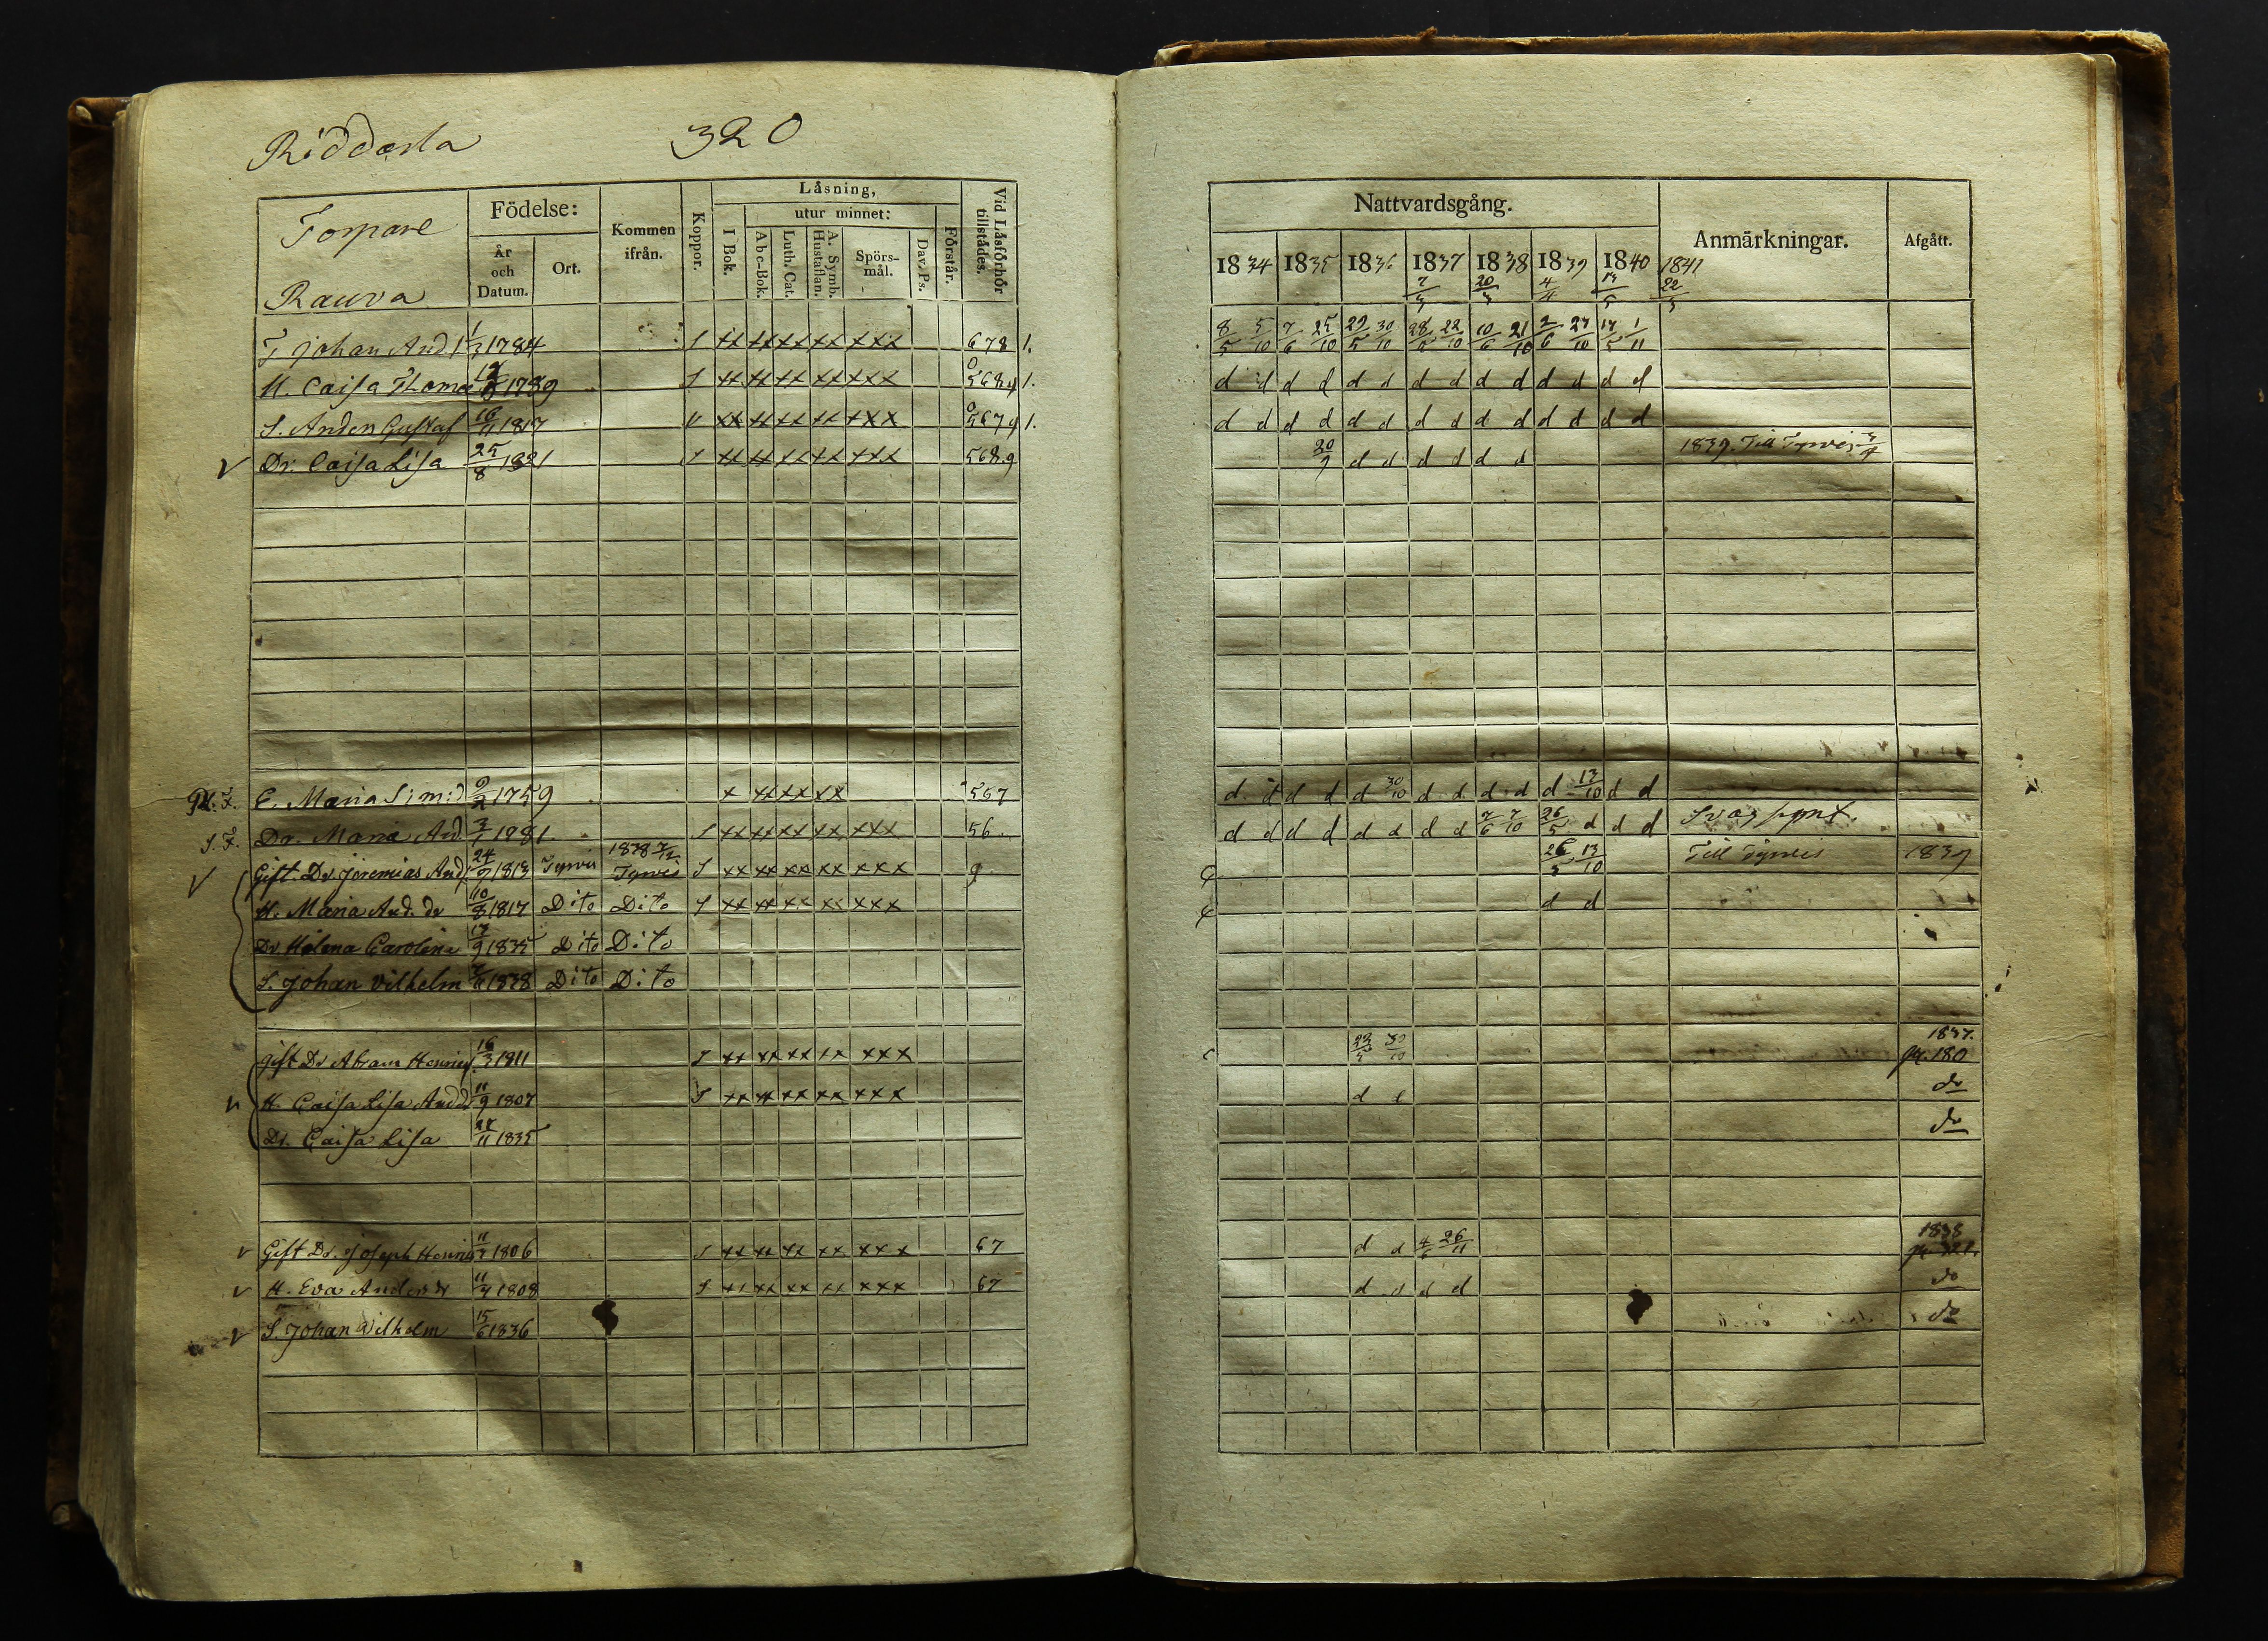 Riddarla 320
Torpare
Rauva
Födelse:
År och Datum.
Ort.
Kommen ifrån.
Koppor.
Läsning,
I Bok.
utur minnet:
Abc-Bok.
Luth. Cat.
A. Symb. Hustaflan.
Spörs-mål.
Dav. Ps.
Förstår.
Vid Läsförhör tillstädes.
T Johan And 1/1 1784 S xx xx xx xx xxx 678 1.
H. Caisa Thomæ 1789 S xx xx xx xx xxx 5684 1.
S. Anders Gustaf 16/11 1817 v xx xx xx xx xxx 5679 1.
v Dr. Caisa Lisa 25/8 1821 S xx xx xx xx xxx 568.9
E. Maria Simd 9/2 1759 x xx xx xx 567
S.F. Dr. Maria And. 3/1 1781 S xx xx xx xxx 56.
1838 7/12
v Gift. Dr. Jeremias And. 24/9 1813 Tyrvis Tyrvis S xx xx xx xx xxx 9
H. Maria And. dr 10/8 1817 Dito Dito S xx xx xx xx xxx
Dr Helena Carolina 1835 Dito Dito
S. Johan Vilhelm 1838 Dito Dito
gift Dr Abram Henrics. 16/3 1811 S xx xx xx xx xxx
H. Caisa Lisa Andd 11/9 1807 S xx xx xx xx xxx
Dr. Caisa Lisa 1835
v Gift Dr. Joseph Henrics 1806 S xx xx xx xx xxx 67
v H. Eva Andersdr 1808 S xx xx xx xx xxx 67
v S. Johan Wilhelm 15/6 1836
Nattvardsgång.
Anmärkningar.
Afgått.
1834 1835 1836 1837 1838 1839 1840 1841
8/5 5/10 7/6 25/10 29/5 30/10 28/5 22/10 10/6 21/10 2/6 27/10 17/5 1/11
d d d d d d d d d d d d d d
d d d d d d d d d d d d d d
20/9 d d d d d d 1839. Till Tyrvis
d d d d d 30/10 d d d d d 13/10 d d
d d d d d d d d 7/6 7/10 26/5 d d d Svag synt.
26/5 13/10 Till Tyrvis 1839
d d
30/10 1837. pg. 180
d d do
do
d d 4/6 26/11 1838
d d d d do
do